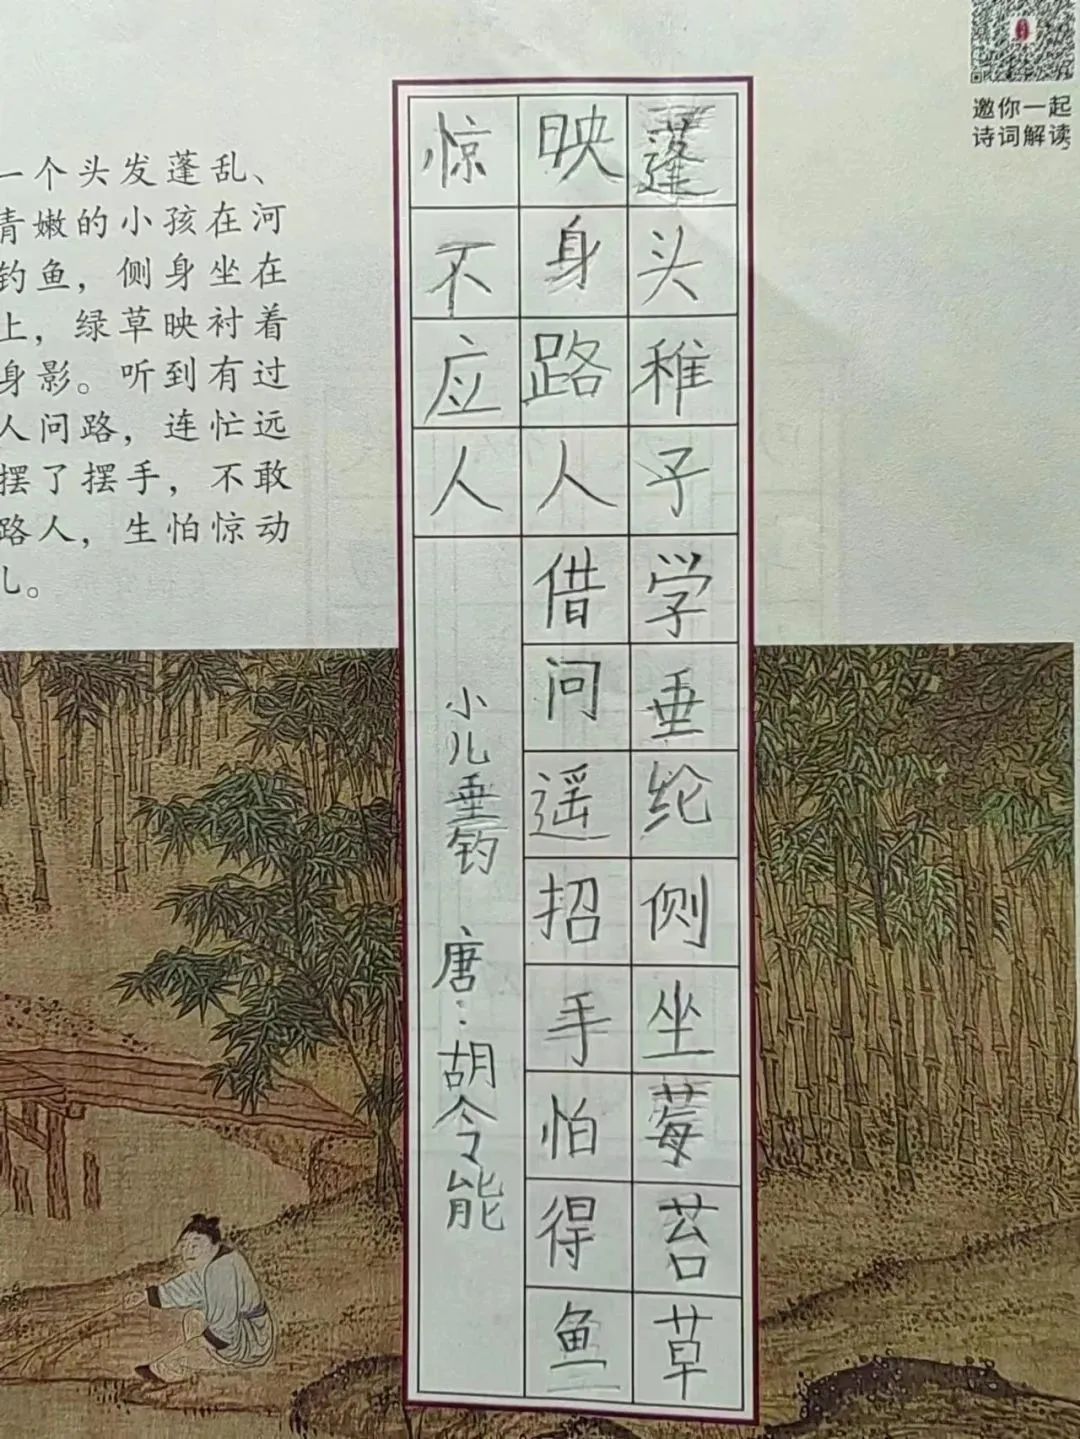 邀你一起
诗词解读
蓬头稚子学垂纶侧坐莓苔草
映身路人借问遥招手怕得鱼
惊不应人
小儿垂钓 唐：胡令能
一个头发蓬乱、
青嫩的小孩在河
钓鱼，侧身坐在
上，绿草映衬着
身影。听到有过
人问路，连忙远
摆了摆手，不敢
路人，生怕惊动
儿。